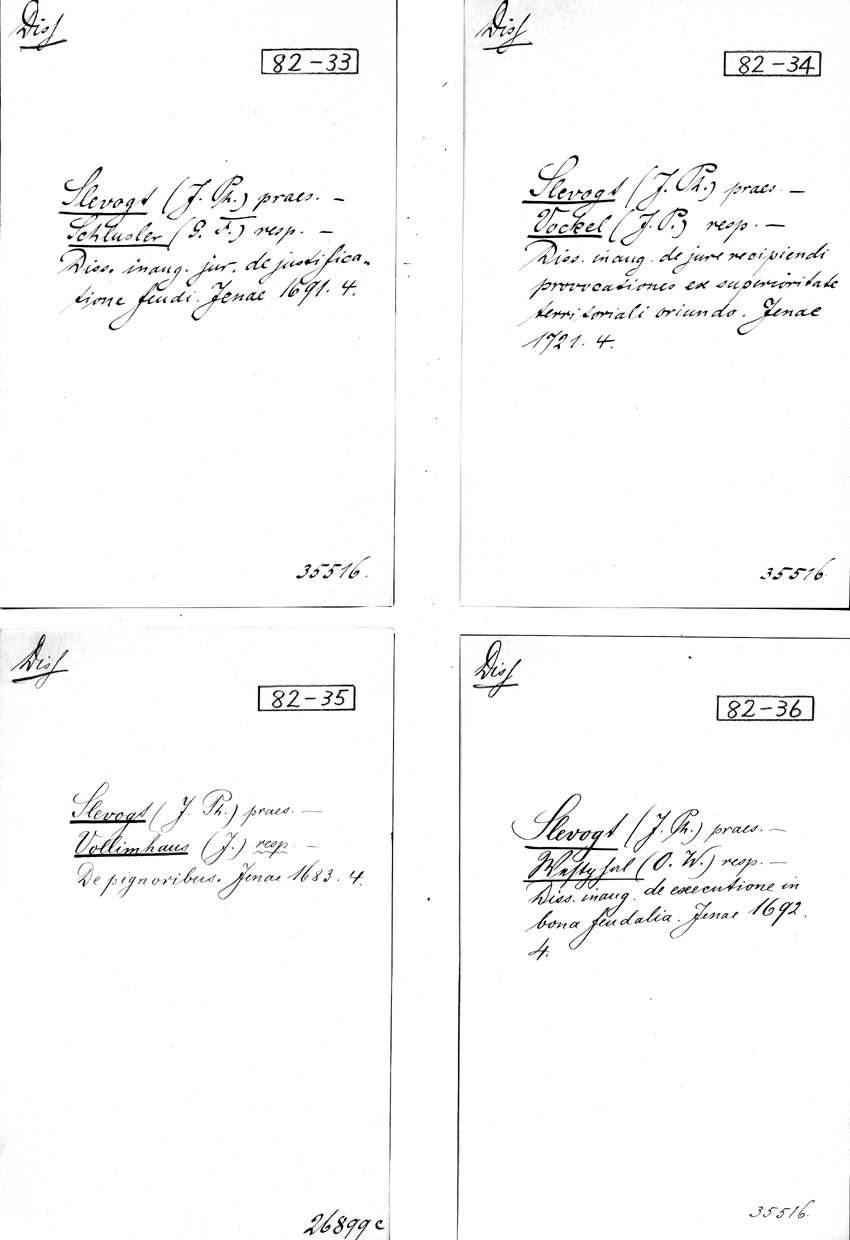 Diss
82-33
Slevogt (J. Ph.) praes. —
Schlusler (G. F.) resp. —
Diss. inaug. jur. de justifica-
tione feudi. Jenae 1691. 4.
35516.
Diss
82-34
Slevogt (J. Ph.) praes. —
Vockel (J. P.) resp. —
Diss. inaug. de jure recipiendi
provocationes ex superioritate
territoriali oriundo. Jenae
1721. 4.
35516.
Diss
82-35
Slevogt (J. Ph.) praes. —
Vollimhaus (J.) resp. —
De pignoribus. Jenae 1683. 4.
26899c
Diss
82-36
Slevogt (J. Ph.) praes. —
Westphal (O. W.) resp. —
Diss. inaug. de executione in
bona feudalia. Jenae 1692.
4.
35516.